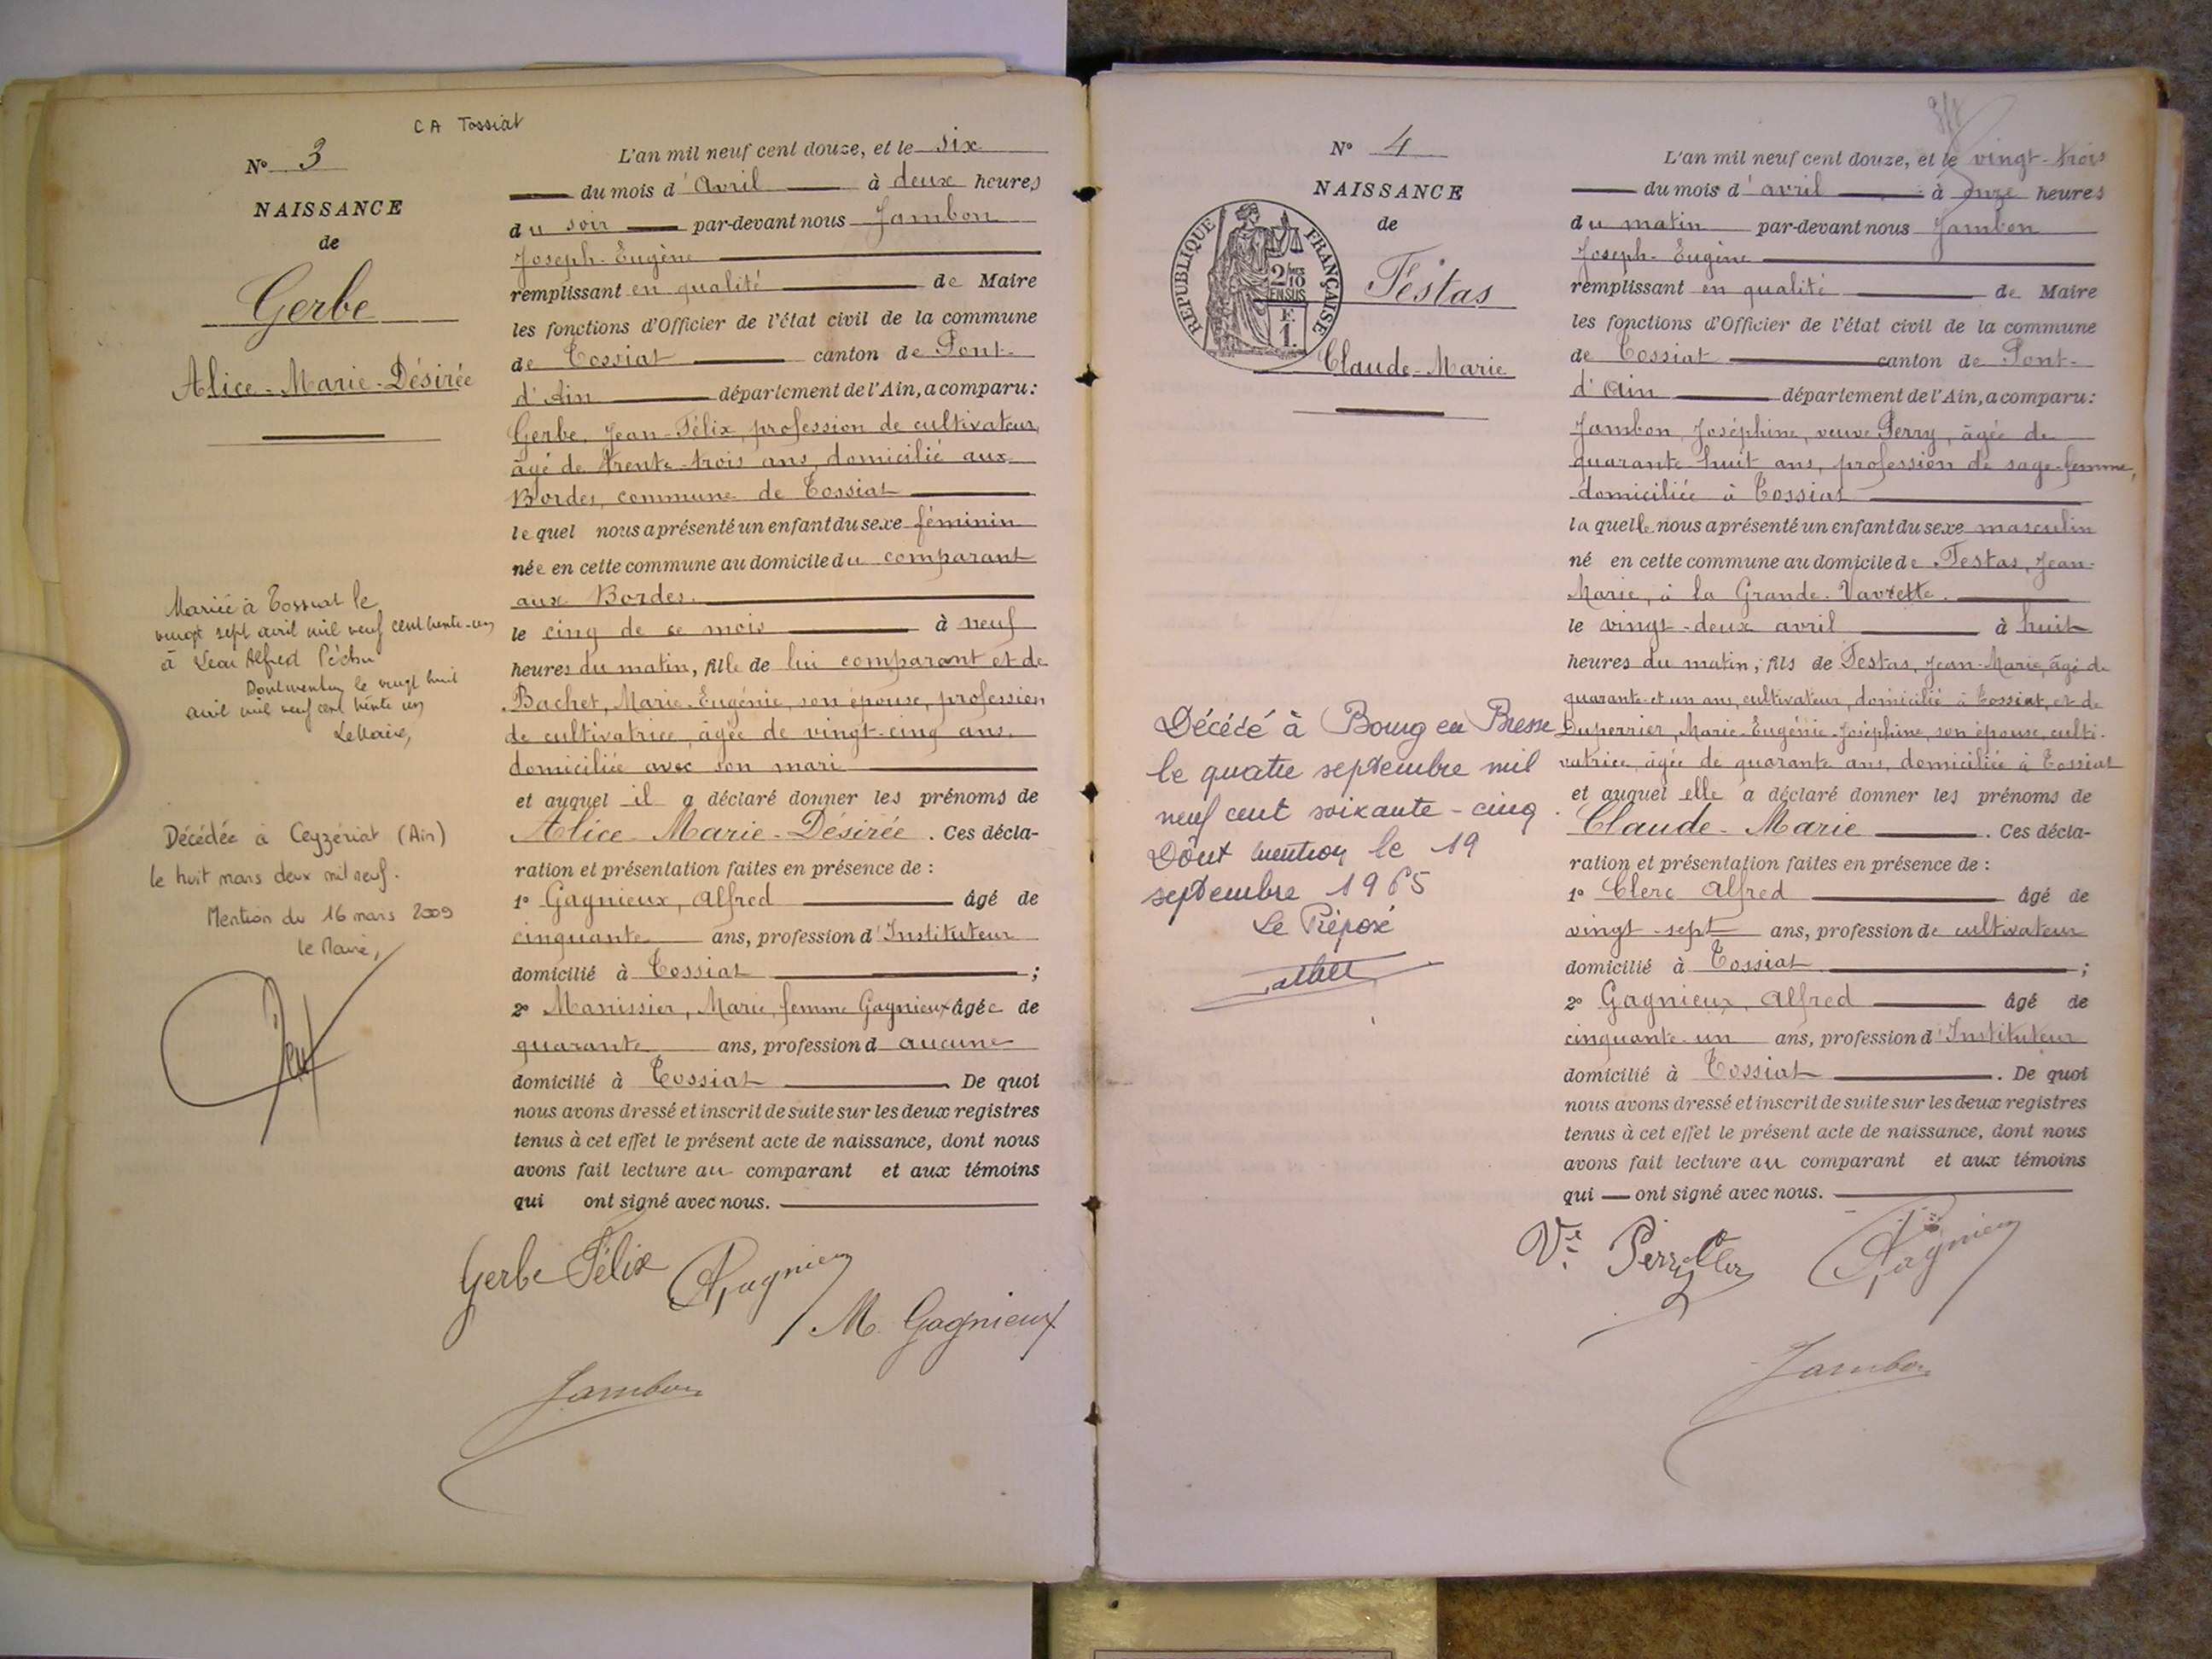 CA Tossiat
N° 3
NAISSANCE
de
Gerbe
Alice-Marie-Désirée
Mariée à Tossiat le
vingt sept avril mil neuf cent trente-un
à Léon Alfred
Dont mention le vingt huit
avril mil neuf cent trente un
Le Maire,
Décédée à Ceyzériat (Ain)
le huit mars deux mil neuf.
Mention du 16 mars 2009
le Maire,
L'an mil neuf cent douze, et le six
du mois d'avril à deux heures
du soir par-devant nous Jambon
Joseph-Eugène
remplissant en qualité de Maire
les fonctions d'Officier de l'état civil de la commune
de Tossiat canton de Pont-
d'Ain département de l'Ain, a comparu:
Gerbe, Jean-Félix, profession de cultivateur,
âgé de trente-trois ans, domicilié aux
Bordes, commune de Tossiat
lequel nous a présenté un enfant du sexe féminin
née en cette commune au domicile du comparant
aux Bordes.
le cinq de ce mois à neuf
heures du matin, fille de lui comparant et de
Bachet, Marie-Eugénie, son épouse, profession
de cultivatrice, âgée de vingt-cinq ans,
domiciliée avec son mari
et auquel il a déclaré donner les prénoms de
Alice-Marie-Désirée. Ces décla-
ration et présentation faites en présence de :
1° Gagnieux, Alfred âgé de
cinquante ans, profession d'Instituteur
domicilié à Tossiat ;
2° Manissier, Marie, femme Gagnieux âgée de
quarante ans, profession d aucune
domicilié à Tossiat. De quoi
nous avons dressé et inscrit de suite sur les deux registres
tenus à cet effet le présent acte de naissance, dont nous
avons fait lecture au comparant et aux témoins
qui ont signé avec nous.
Gerbe Félix AGagnieux
M. Gagnieux
Jambon
N° 4
NAISSANCE
de
RÉPUBLIQUE FRANÇAISE
2/10
EN SUS
F.
1.
Testas
Claude-Marie
Décédé à Bourg en Bresse
le quatre septembre mil
neuf cent soixante-cinq
Dont mention le 19
septembre 1965
Le Préposé
L'an mil neuf cent douze, et le vingt-trois
du mois d'avril à onze heures
du matin par-devant nous Jambon
Joseph-Eugène
remplissant en qualité de Maire
les fonctions d'Officier de l'état civil de la commune
de Tossiat canton de Pont-
d'Ain département de l'Ain, a comparu:
Jambon, Joséphine, veuve Perry, âgée de
quarante-huit ans, profession de sage-femme,
domiciliée à Tossiat
laquelle nous a présenté un enfant du sexe masculin
né en cette commune au domicile de Testas, Jean-
Marie, à la Grande-Vavrette.
le vingt-deux avril à huit
heures du matin, fils de Testas, Jean-Marie, âgé de
quarante-et-un ans, cultivateur, domicilié à Tossiat, et de
Duperrier, Marie-Eugénie-Joséphine, son épouse, culti-
vatrice, âgée de quarante ans, domiciliée à Tossiat
et auquel elle a déclaré donner les prénoms de
Claude-Marie. Ces décla-
ration et présentation faites en présence de :
1° Clerc Alfred âgé de
vingt-sept ans, profession de cultivateur
domicilié à Tossiat ;
2° Gagnieux, Alfred âgé de
cinquante-un ans, profession d'Instituteur
domicilié à Tossiat. De quoi
nous avons dressé et inscrit de suite sur les deux registres
tenus à cet effet le présent acte de naissance, dont nous
avons fait lecture au comparant et aux témoins
qui ont signé avec nous.
Ve Perry Clerc AGagnieux
Jambon